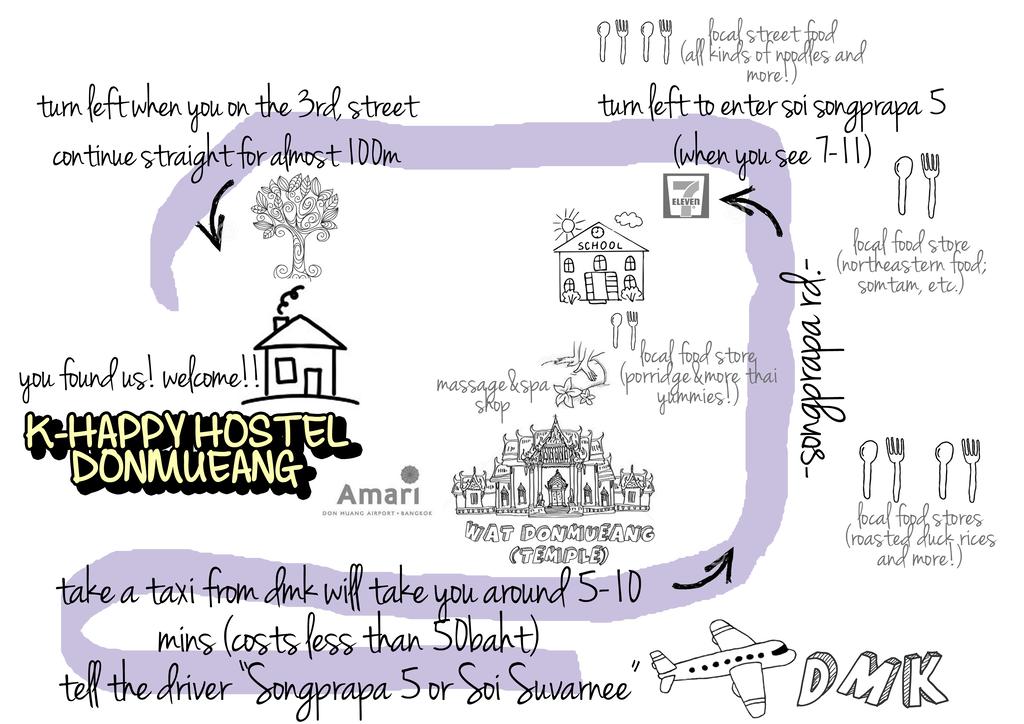 local street food
(all kinds of noodles and
more!)
turn left when you on the 3rd, street
continue straight for almost 100m
turn left to enter soi songprapa 5
(when you see 7-11)
7
ELEVEN
SCHOOL
local food store
(northeastern food;
somtam, etc.)
-songprapa rd.-
local food store
(porridge & more thai
yummies!)
massage & spa
shop
you found us! welcome!!
K-HAPPY HOSTEL
DONMUEANG
Amari
DON MUANG AIRPORT • BANGKOK
WAT DONMUEANG
(TEMPLE)
local food stores
(roasted duck rices
and more!)
take a taxi from dmk will take you around 5-10
mins (costs less than 50baht)
tell the driver "Songprapa 5 or Soi Suvarnee"
DMK